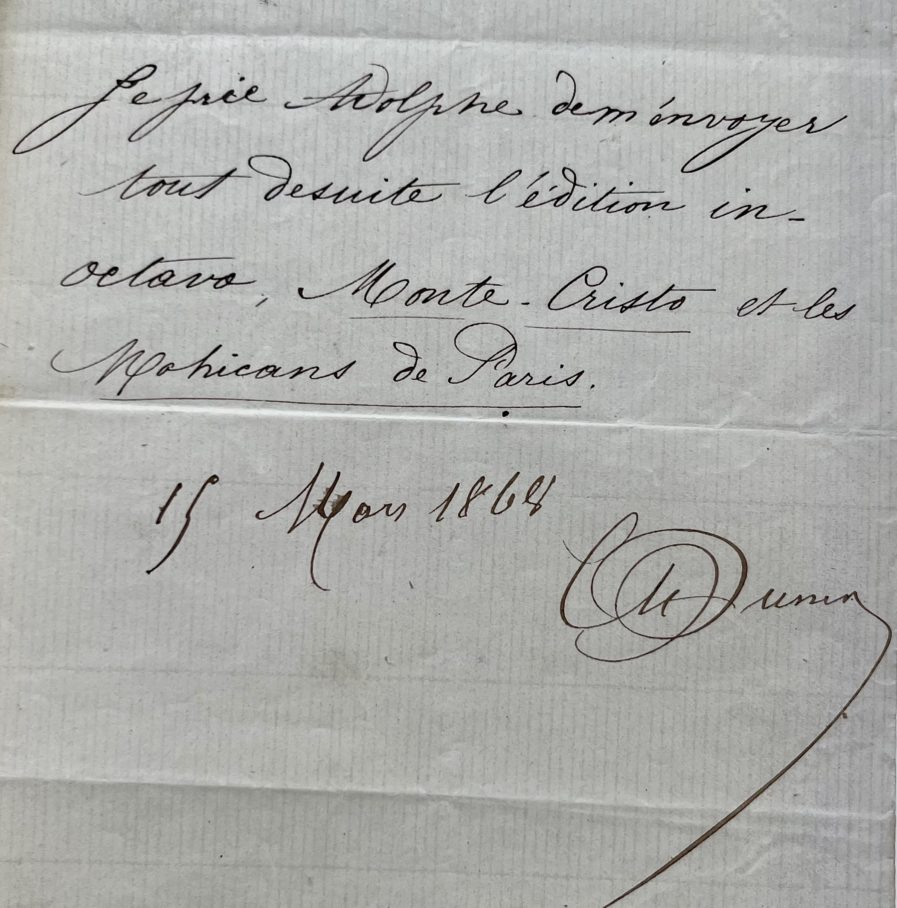 Je prie Adolphe de m'envoyer
tout desuite l'édition in-
octavo, Monte-Cristo et les
Mohicans de Paris.
15 Mars 1868